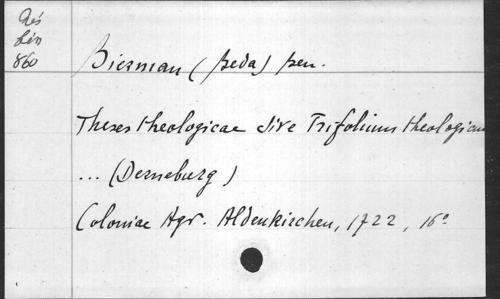 Rés
bis
860
Bierman (Beda) pen.
Theses theologicae sive Trifolium theologicum
... (Derneburg)
Coloniae Agr. Aldenkirchen, 1722, 16°